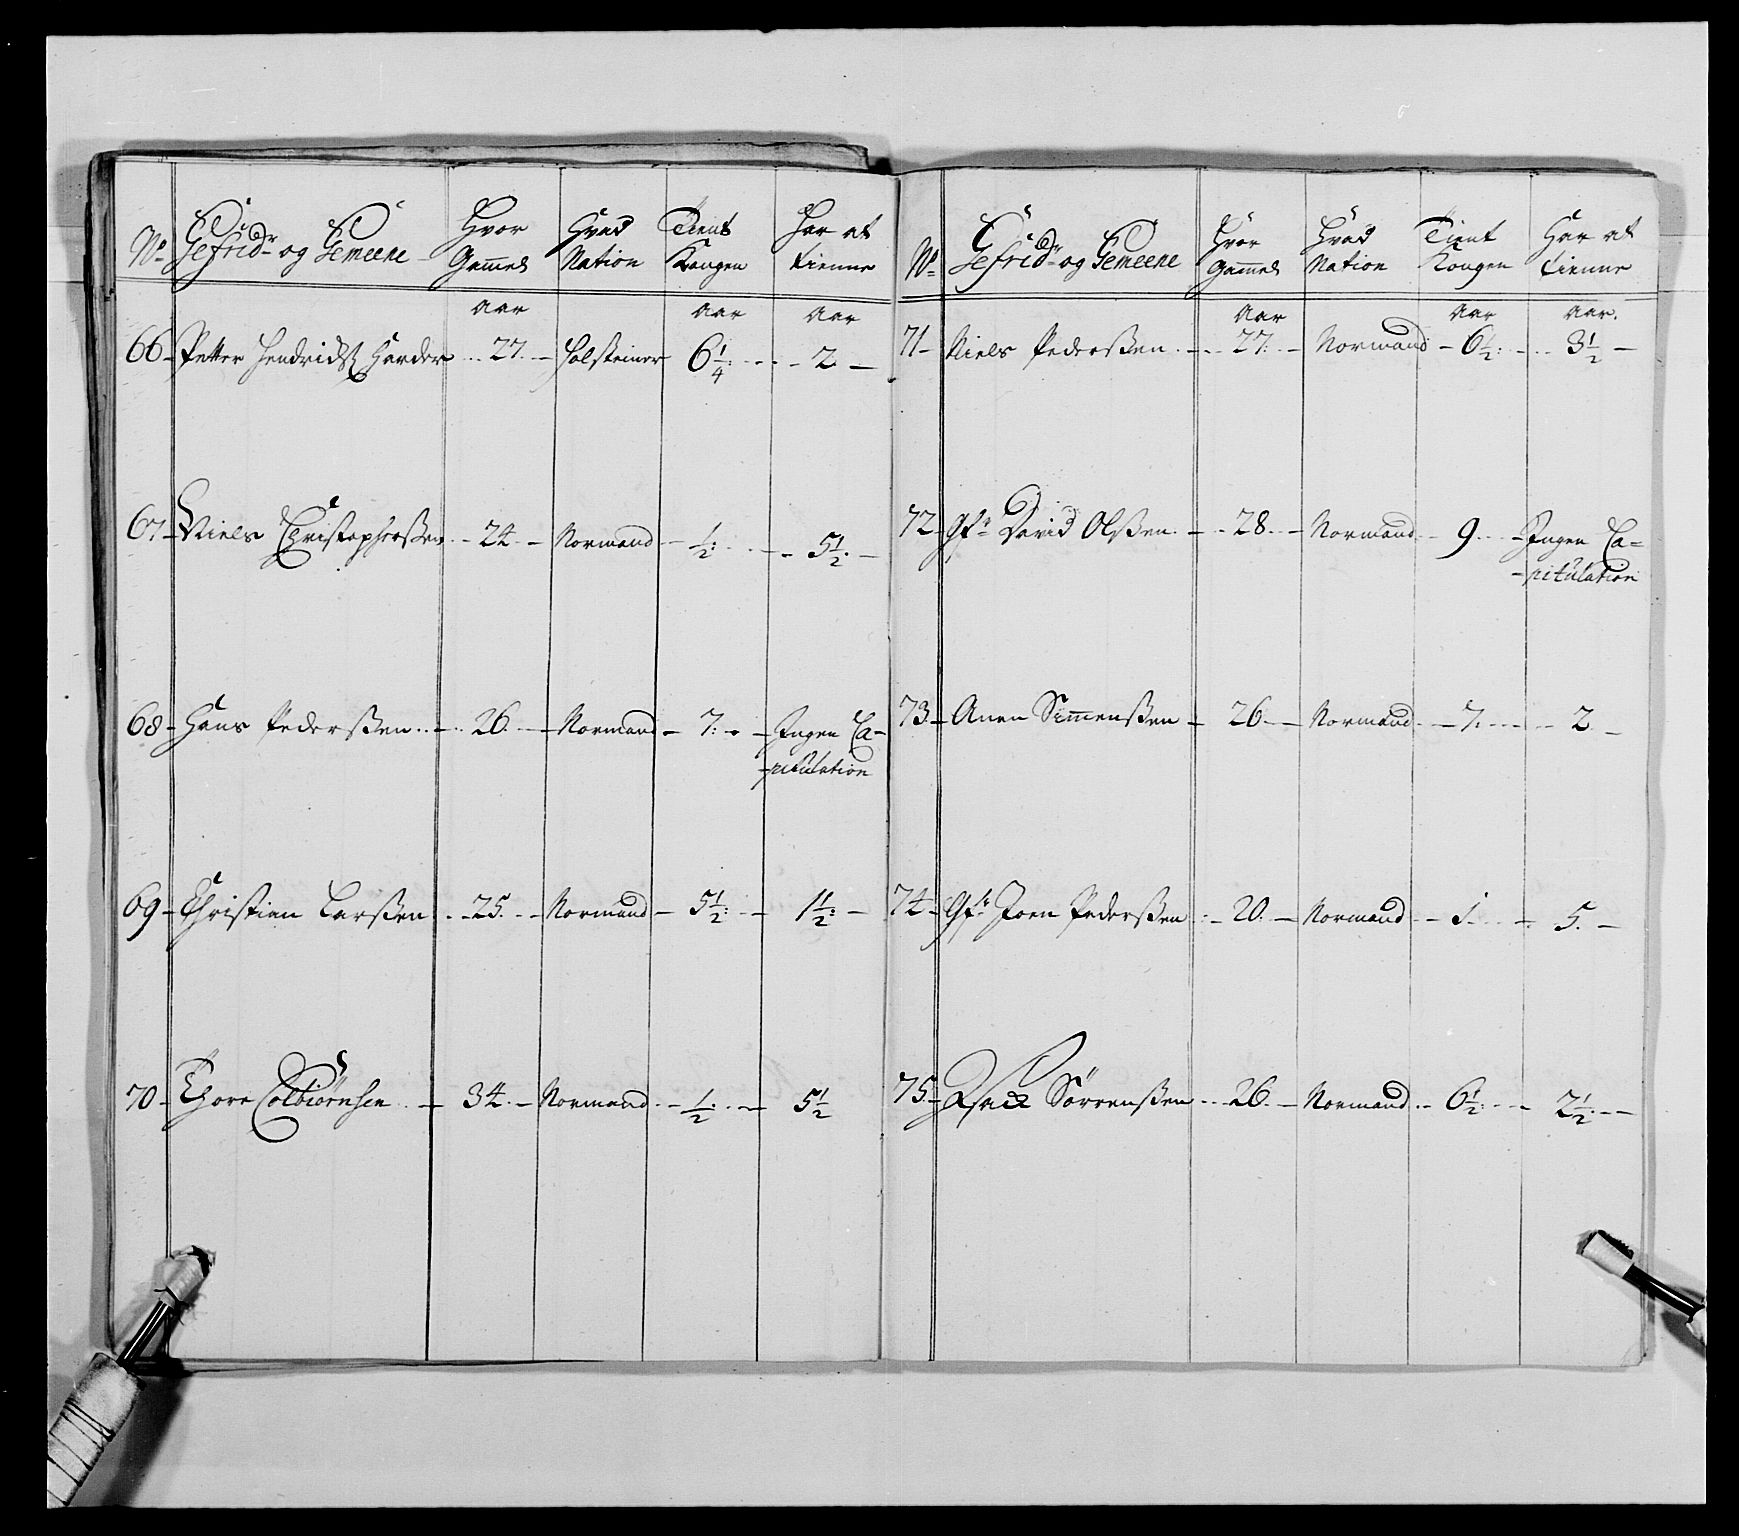 No Gefrid.r og Gemeene Hvor Gammel Hvad Nation Tient Kongen Har at tienne
aar aar aar
66 Petter Hendrids. Harder 27 Holsteiner 6 1/4 2
67 Niels Christophersßen 24 Normand 1/2 5 1/2
68 Hans Pedersßen 26 Normand 7 Ingen Ca=
pitulation
69 Christian Larsßen 25 Normand 5 1/2 1 1/2
70 Thore Colbiörnsen 34 Normand 1/2 5 1/2
No Gefrid.r og Gemeene Hvor Gammel Hvad Nation Tient Kongen Har at tienne
aar aar aar
71 Niels Pedersßen 27 Normand 6 1/2 3 1/2
72 Gfr David Olsßen 28 Normand 9 Ingen Ca=
pitulation
73 Anen Simmensßen 26 Normand 7 2
74 Gfr Joen Pedersßen 20 Normand 1 5
75 Isach Sörrensßen 26 Normand 6 1/2 2 1/2